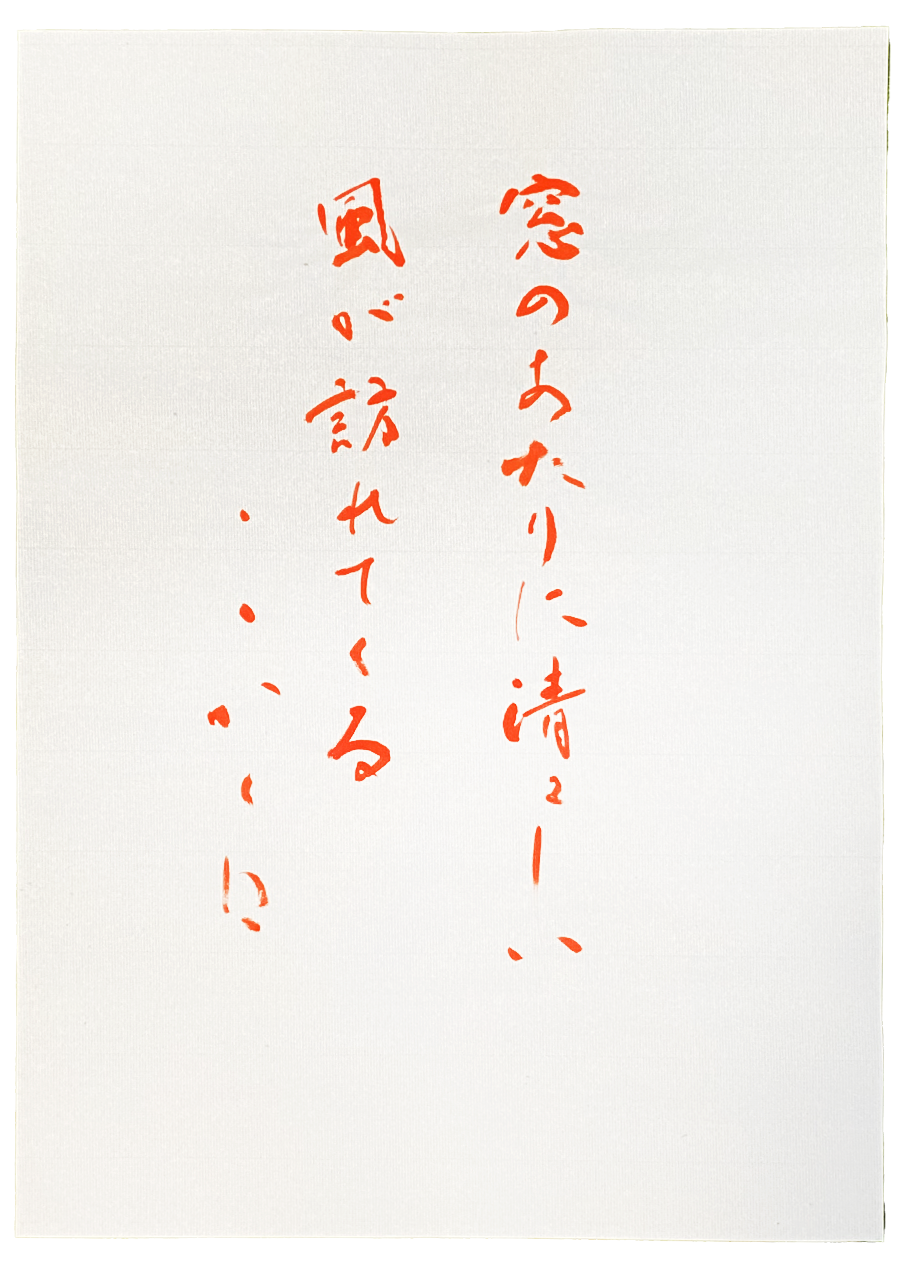 窓のあたりに清々しい
風が訪れてくる